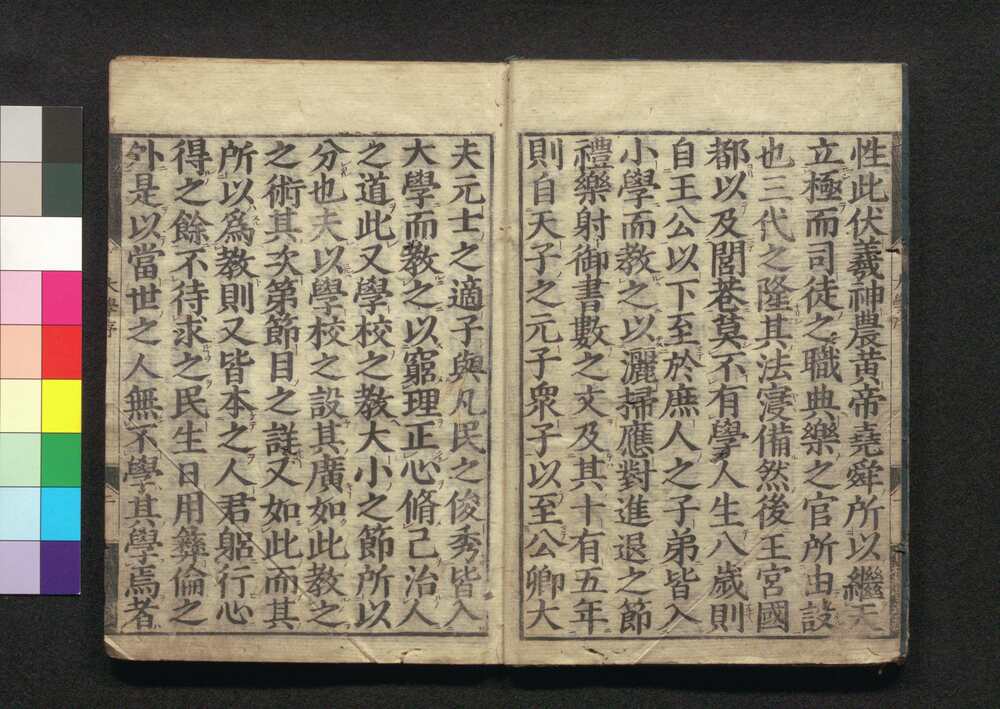 性此伏羲神農黃帝堯舜所以繼天
立極而司徒之職典樂之官所由設
也三代之隆其法寖備然後王宮國
都以及閭巷莫不有學人生八歲則
自王公以下至於庶人之子弟皆入
小學而教之以灑掃應對進退之節
禮樂射御書數之文及其十有五年
則自天子之元子衆子以至公卿大
夫元士之適子與凡民之俊秀皆入
大學而教之以窮理正心脩己治人
之道此又學校之教大小之節所以
分也夫以學校之設其廣如此教之
之術其次第節目之詳又如此而其
所以爲教則又皆本之人君躬行心
得之餘不待求之民生日用彝倫之
外是以當世之人無不學其學焉者